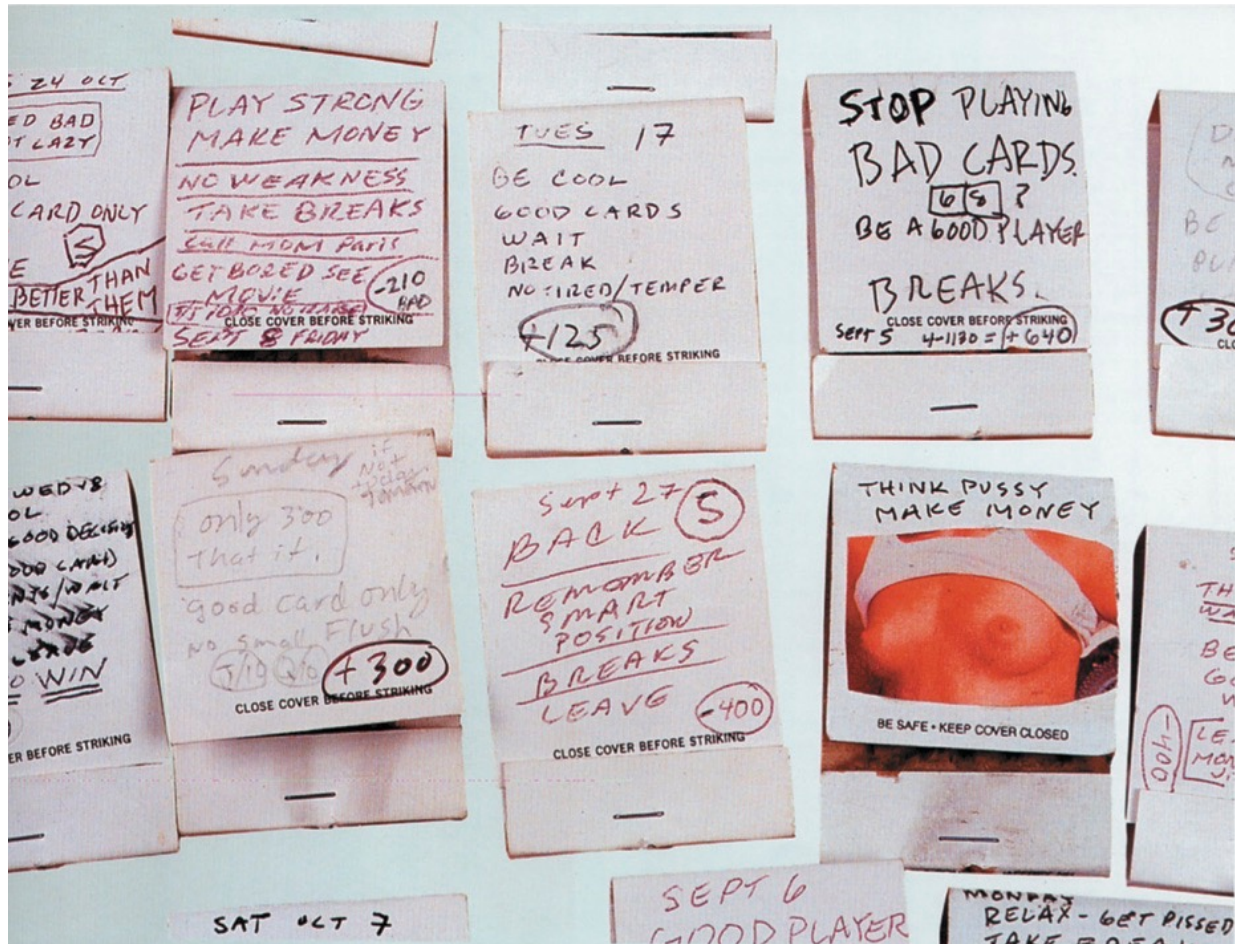 24 OCT
ED BAD
T LAZY
OL
CARD ONLY
S
E
BETTER THAN
THEM
VER BEFORE STRIKING
PLAY STRONG
MAKE MONEY
NO WEAKNESS
TAKE BREAKS
CALL MOM Paris
GET BORED SEE
MOVIE
-210
BAD
CLOSE COVER BEFORE STRIKING
SEPT 8 FRIDAY
TUES 17
BE COOL
GOOD CARDS
WAIT
BREAK
NO TIRED/TEMPER
+125
CLOSE COVER BEFORE STRIKING
STOP PLAYING
BAD CARDS.
6 8 ?
BE A GOOD PLAYER
BREAKS.
CLOSE COVER BEFORE STRIKING
SEPT 5 4-1130 = +640
D
BE
PU
+30
CLO
WED 18
OL
GOOD DECISION
OOD CARD
MONEY
LEAVE
O WIN
ER BEFORE STRIKING
Sunday if
Not
only 300
that it.
good card only
No small Flush
J/10 Q/10
+300
CLOSE COVER BEFORE STRIKING
Sept 27
5
BACK
REMOMBER
SMART
POSITION
BREAKS
LEAVE
-400
CLOSE COVER BEFORE STRIKING
THINK PUSSY
MAKE MONEY
BE SAFE • KEEP COVER CLOSED
TH
WA
BE
GO
W
-400
LE
MON
SAT OCT 7
SEPT 6
GOOD PLAYER
MONDAY
RELAX - GET PISSED
TAKE BREA